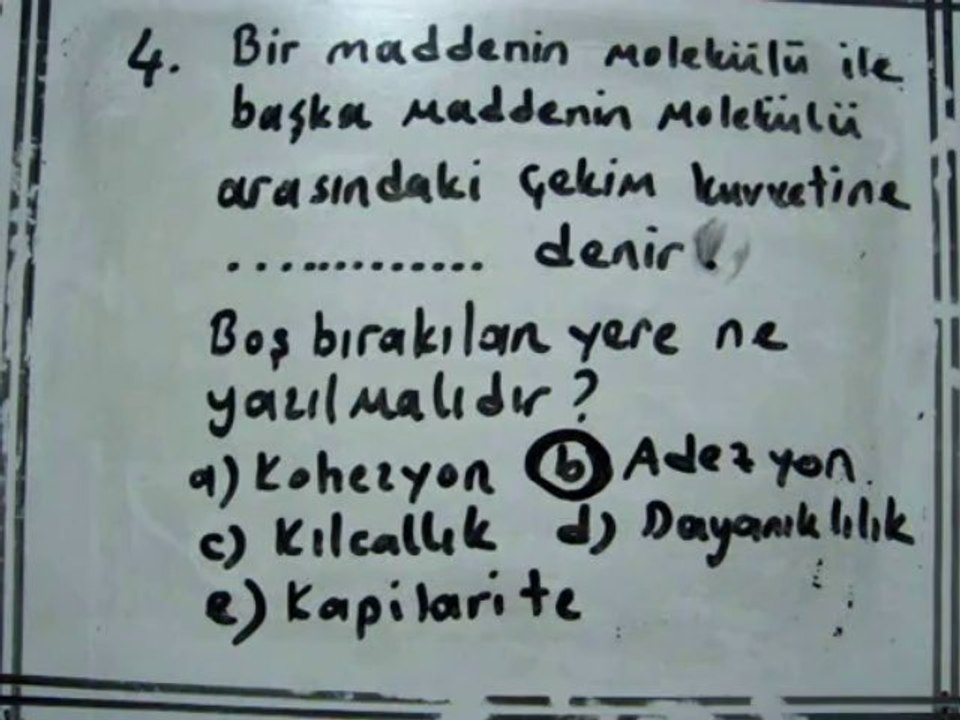 4. Bir maddenin molekülü ile
başka maddenin molekülü
arasındaki çekim kuvvetine
............. denir.
Boş bırakılan yere ne
yazılmalıdır?
a) Kohezyon b) Adezyon
c) Kılcallık d) Dayanıklılık
e) Kapilarite